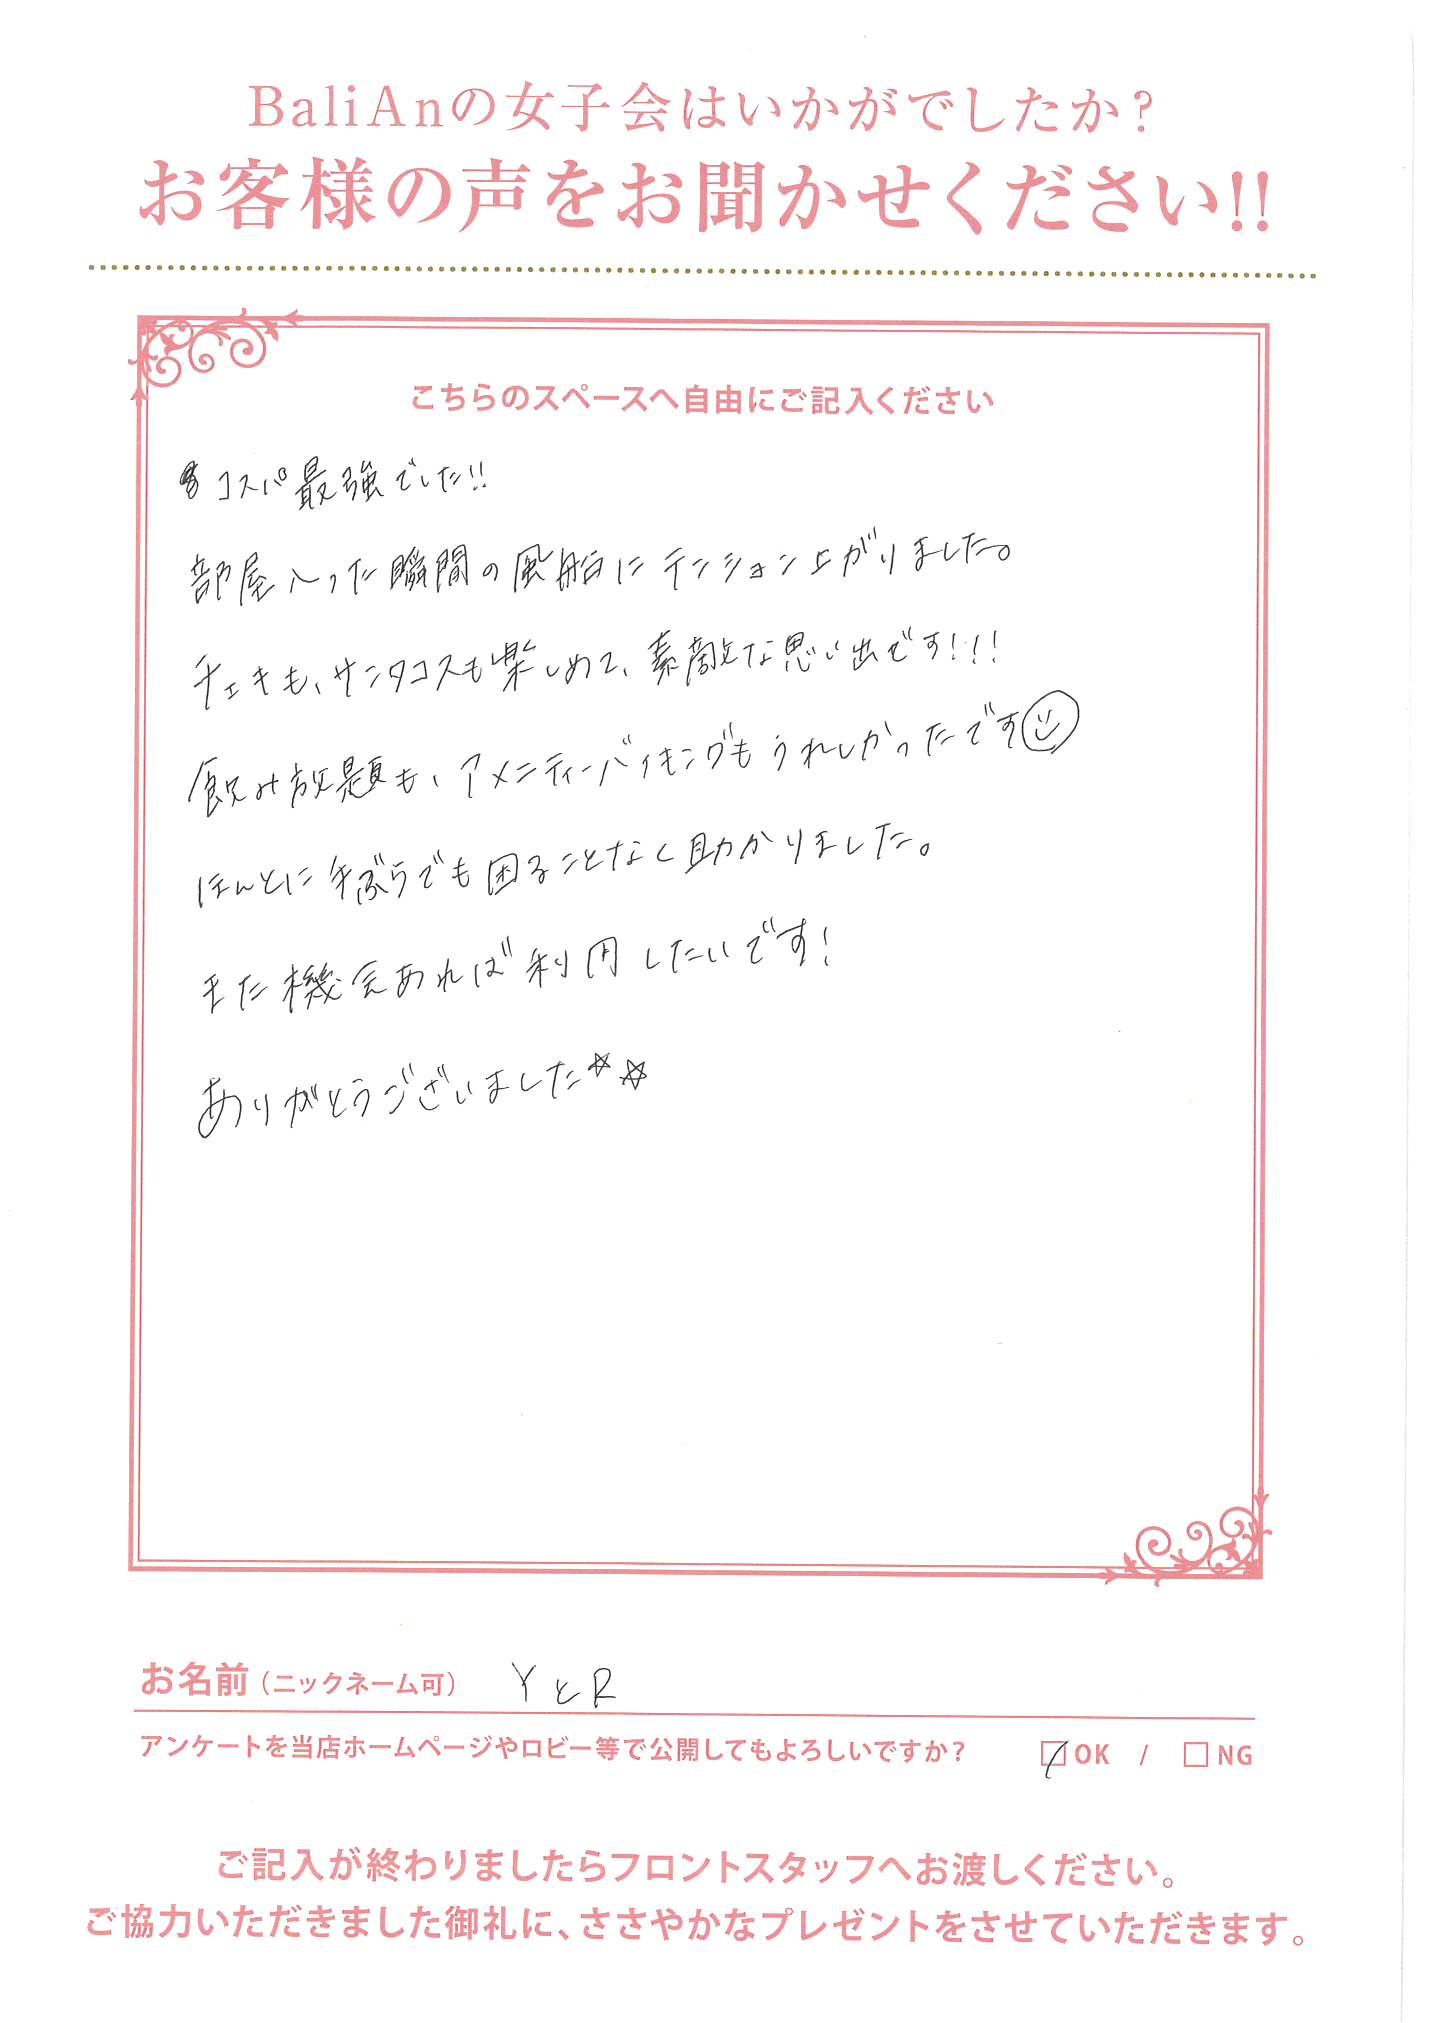 BaliAnの女子会はいかがでしたか?
お客様の声をお聞かせください!!
こちらのスペースへ自由にご記入ください
コスパ最強でした!!
部屋入った瞬間の風船にテンション上がりました。
チェキも、サンタコスも楽しめて、素敵な思い出です!!!
飲み放題も、アメニティーバイキングもうれしかったです
ほんとに手ぶらでも困ることなく助かりました。
また機会あれば利用したいです!
ありがとうございました☆☆
お名前(ニックネーム可) YとR
アンケートを当店ホームページやロビー等で公開してもよろしいですか? ☑OK / □NG
ご記入が終わりましたらフロントスタッフへお渡しください。
ご協力いただきました御礼に、ささやかなプレゼントをさせていただきます。